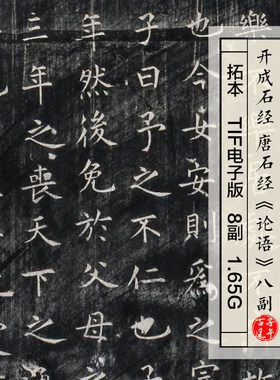 开成石经唐石经《论语》八副
拓本 TIF电子版 8副 1.65G
樂
也今女安則為之
子曰予之不仁也
年然後免於父母之
三年之喪天下之